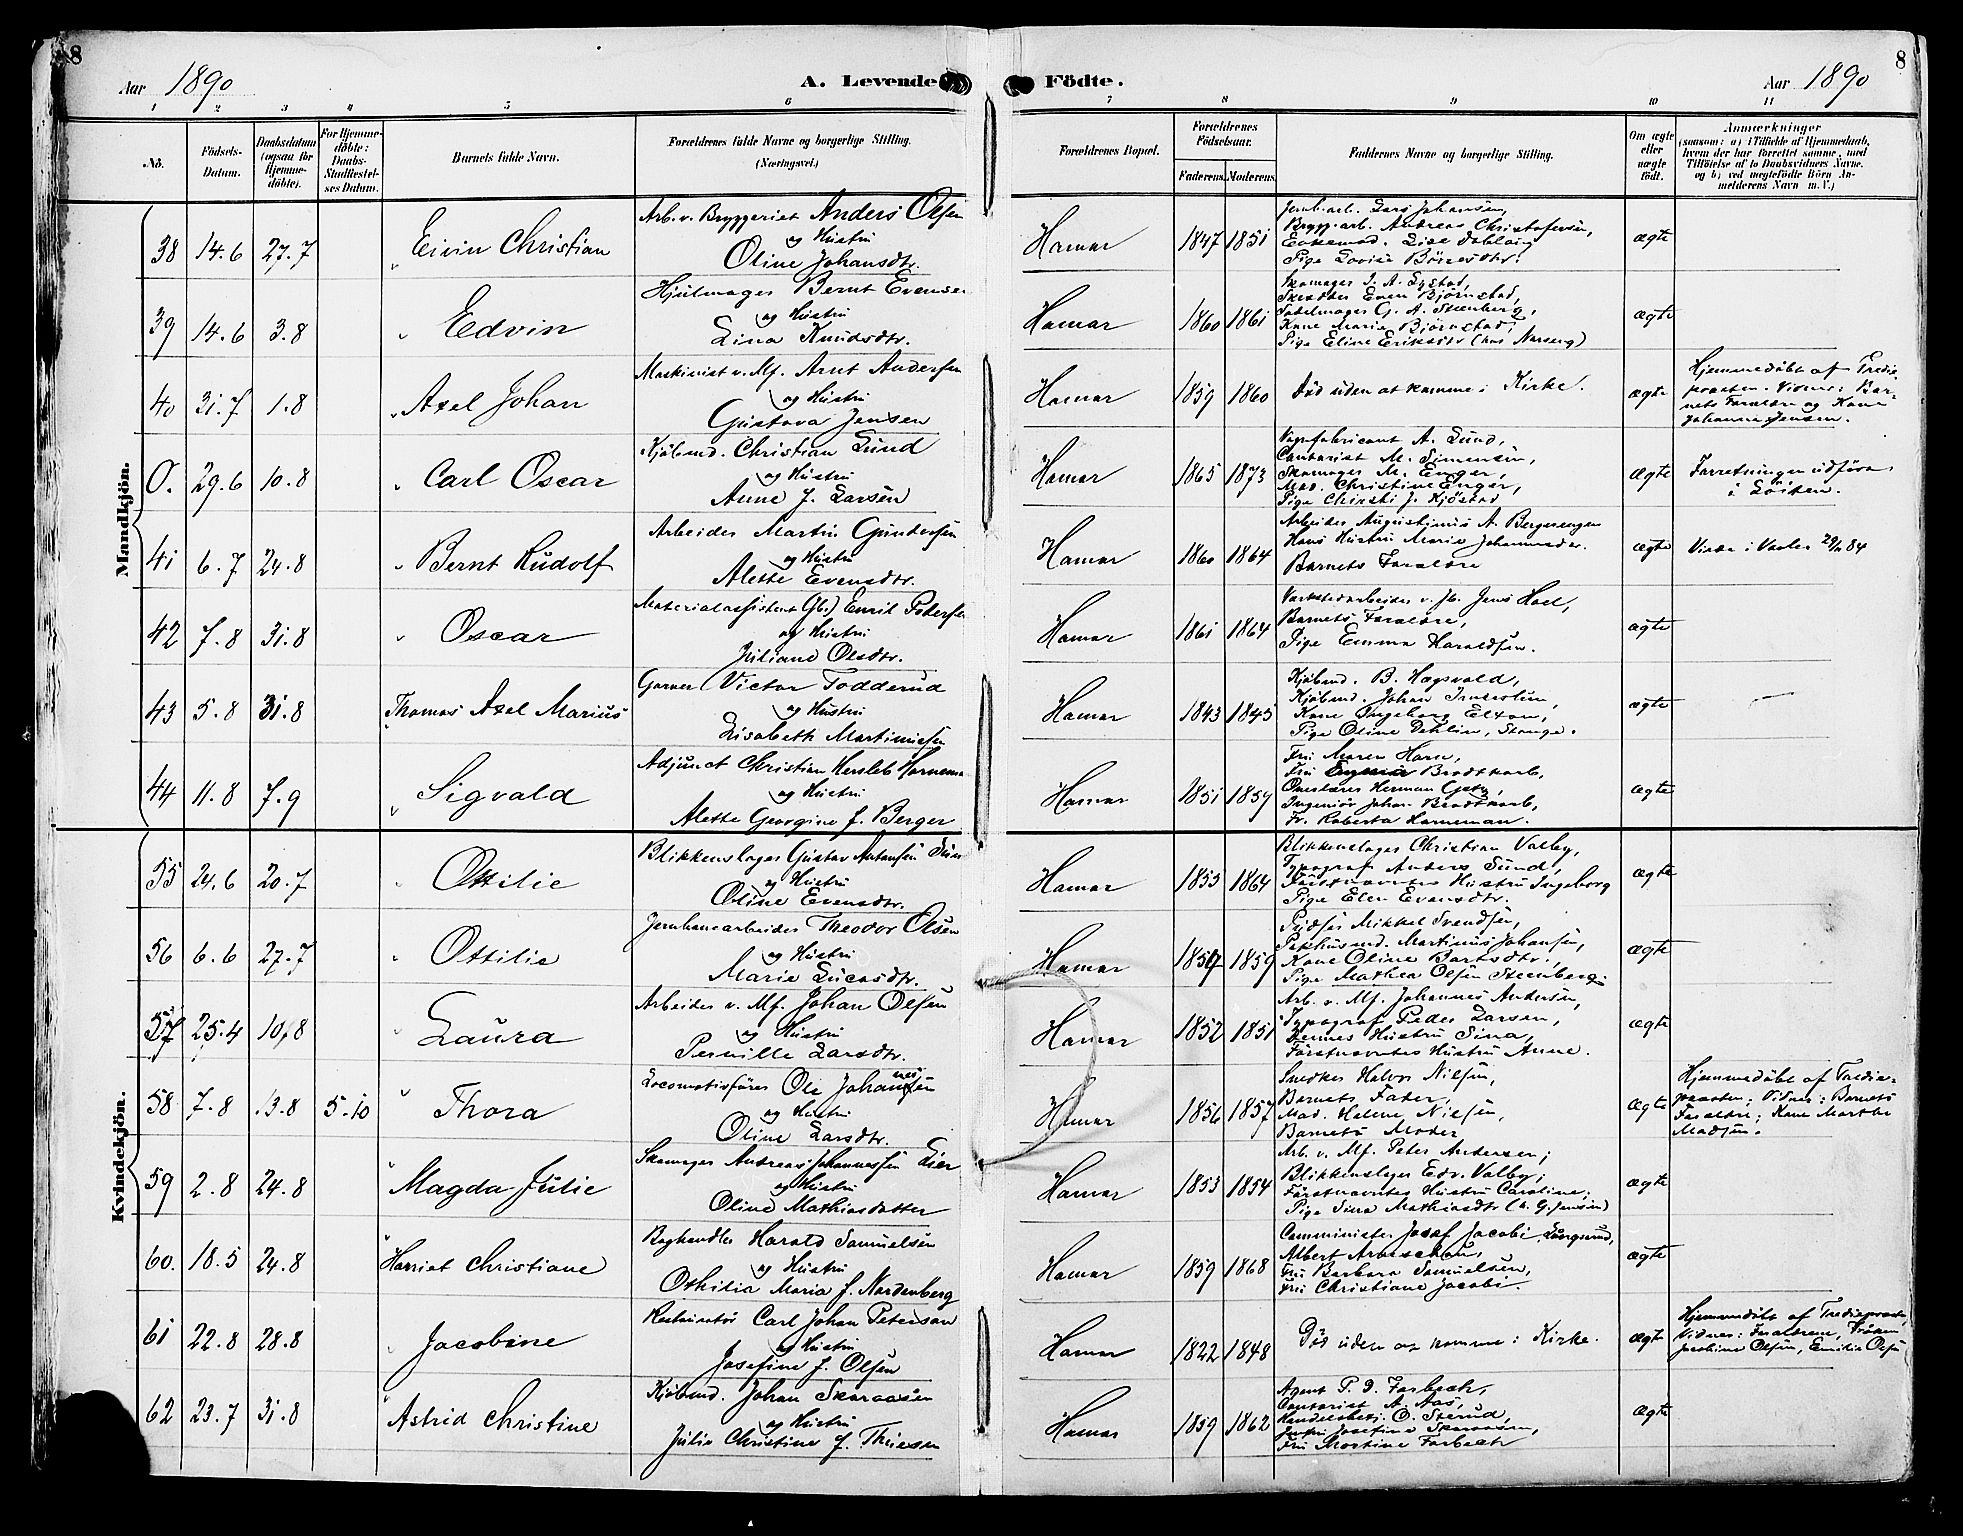 8
Aar 1890
A. Levende Födte.
Aar 1890
8
1 2 3 4 5 6 7 8 9 10 11
No.
Födsels-Datum.
Daabsdatum (ogsaa for Hjemmedöbte).
For Hjemmedöbte: Daabs-Stadfæstelses Datum.
Barnets fulde Navn.
Forældrenes fulde Navne og borgerlige Stilling. (Næringsvei.)
Forældrenes Bopæl.
Forældrenes Födselsaar.
Faderens. Moderens.
Faddernes Navne og borgerlige Stilling.
Om ægte eller uægte födt.
Anmærkninger
(saasom: a) i Tilfælde af Hjemmedaab, hvem der har forrettet samme, med Tilföielse af to Daabsvidners Navne. og b) ved uægtefödte Börn Anmelderens Navn m. V.)
Mandkjön.
38 14.6 27.7 Eivin Christian
Arb. v. Bryggeriet Anders Olsen
og Hustru
Oline Johansdtr.
Hamar 1847 1851
Jernb.arb. Lars Johansen,
Brygg.arb. Andreas Christofersen,
Enkemad. Lise Dahlvig
Pige Lovise Börresdtr.
ægte
39 14.6 3.8 Edvin
Hjulmager Bernt Evensen
og Hustru
Lina Knudsdtr.
Hamar 1860 1861
Skomager J. A. Systad,
Skrædder Even Björnstad,
Sadelmager G. A. Steenberg,
Kone Marie Björnstad,
Pige Eline Eriksdtr
ægte
40 31.7 1.8 Axel Johan
Maskinist v. Mf. Arnt Andersen
og Hustru
Gustava Jensen
Hamar 1859 1860
Död uden at komme i Kirke.
ægte
Hjemmedöbt af Tredie-
præsten. Vidner: Bar-
nets Forældre og Kone
Johanna Jensen.
0. 29.6 10.8 Carl Oscar
Kjöbmd. Christian Lund
og Hustru
Anne f. Larsen
Hamar 1865 1873
Vognfabricant A. Lund,
Contorist M. Simensen,
Skomager M. Enger,
Mad. Christine Enger,
Pige Kjöstad
ægte
Forretningen udföres
i Löiten.
41 6.7 24.8 Bernt Rudolf
Arbeider Martin Gundersen
og Hustru
Alette Evensdtr.
Hamar 1860 1864
Arbeider Augustinus A. Bergesengen
Hans Hustru Marie Johannesdtr.
Barnets Forældre
ægte
42 7.8 31.8 Oscar
Materialassistent (Jb.) Emil Pedersen
og Hustru
Juliane Olsdtr.
Hamar 1861 1864
Værkstedarbeider v. Jb. Jens Hoel,
Barnets Forældre,
Pige Emma Haraldsen.
ægte
43 5.8 31.8 Thomas Axel Marius
Garver Victor Todderud
og Hustru
Lisabeth Martiniusen
Hamar 1843 1845
Kjöbmd. B. Hægsvold,
Kjöbmd. Johan
Kone Ingeborg Elton,
Pige Oline Dehlin, Stange.
ægte
44 11.8 7.9 Sigvald
Adjunct Christian Hersleb Horneman
og Hustru
Alette Georgine f. Berger
Hamar 1851 1859
Fru Maren Horn,
Fru Brodtkorb,
Herman Getz,
Ingeniör Johan Brodtkorb,
Fr. Roberta Horneman.
ægte
Kvindekjön.
55 24.6 20.7 Ottilie
Blikkenslager Gustav Antonsen
og Hustru
Oline Evensdtr.
Hamar 1855 1864
Blikkenslager Christian Valby,
Typograf Anders Lund,
Förstnævntes Hustru Ingeborg
Pige Elen Evensdtr.
ægte
56 6.6 27.7 Ottilie
Jernbanearbeider Theodor Olsen
og Hustru
Marie Lucasdtr.
Hamar 1857 1859
Pudser Mikkel Svendsen,
Pakhusmd. Martinus Johansen,
Kone Oline
Pige Mathea Olsen Steenberg.
ægte
57 25.4 10.8 Laura
Arbeider v. Mf. Johan Olsen
og Hustru
Pernille Larsdtr.
Hamar 1852 1851
Arb. v. Mf. Johannes Andersen,
Typograf Peder Larsen,
Dennes Hustru Sina,
Förstnævntes Hustru Anne.
ægte
58 7.8 13.8 5.10 Thora
Locomotivförer Ole Johannesen
og Hustru
Oline Larsdtr.
Hamar 1856 1857
Snedker Halvor Nilsen,
Barnets Fader,
Mad. Helene Nielsen,
Barnets Moder
ægte
Hjemmedöbt af Tredie-
præsten; Vidner: Barnets
Forældre; Kone Marthe
Madsen.
59 2.8 24.8 Magda Julie
Skomager Andreas Johannessen Lier
og Hustru
Oline Mathiasdatter
Hamar 1853 1854
Arb. v. Mf. Peter Andersen;
Blikkenslager Edv. Valby;
Förstnævntes Hustru Caroline;
Pige Sina Mathiasdtr (h. G. Jensen)
ægte
60. 18.5 24.8 Harriet Christiane
Boghandler Harald Samuelsen
og Hustru
Othilia Maria f. Nordenberg
Hamar 1859 1868
Comminister Josef Jacobi,
Albert
Fru Barbara Samuelsen,
Fru Christiane Jacobi.
ægte
61 22.8 28.8 Jacobine
Restauratör Carl Johan Peterson
og Hustru
Josefine f. Olsen
Hamar 1822 1848
Död uden at komme i Kirke.
ægte
Hjemmedöbt af Trediepræsten,
Vidner: Forældrene, Fröken
Jacobine Olsen, Emilie Olsen
62 23.7 31.8 Astrid Christine
Kjöbmd. Johan Skaraasen
og Hustru
Julie Christine f. Thiesen
Hamar 1859 1862
Agent P. J. Forbech,
Contorist A. Aas,
Handelsbetj. O. Sterud,
Josefine Skaraasen,
Fru Martine Forbech
ægte